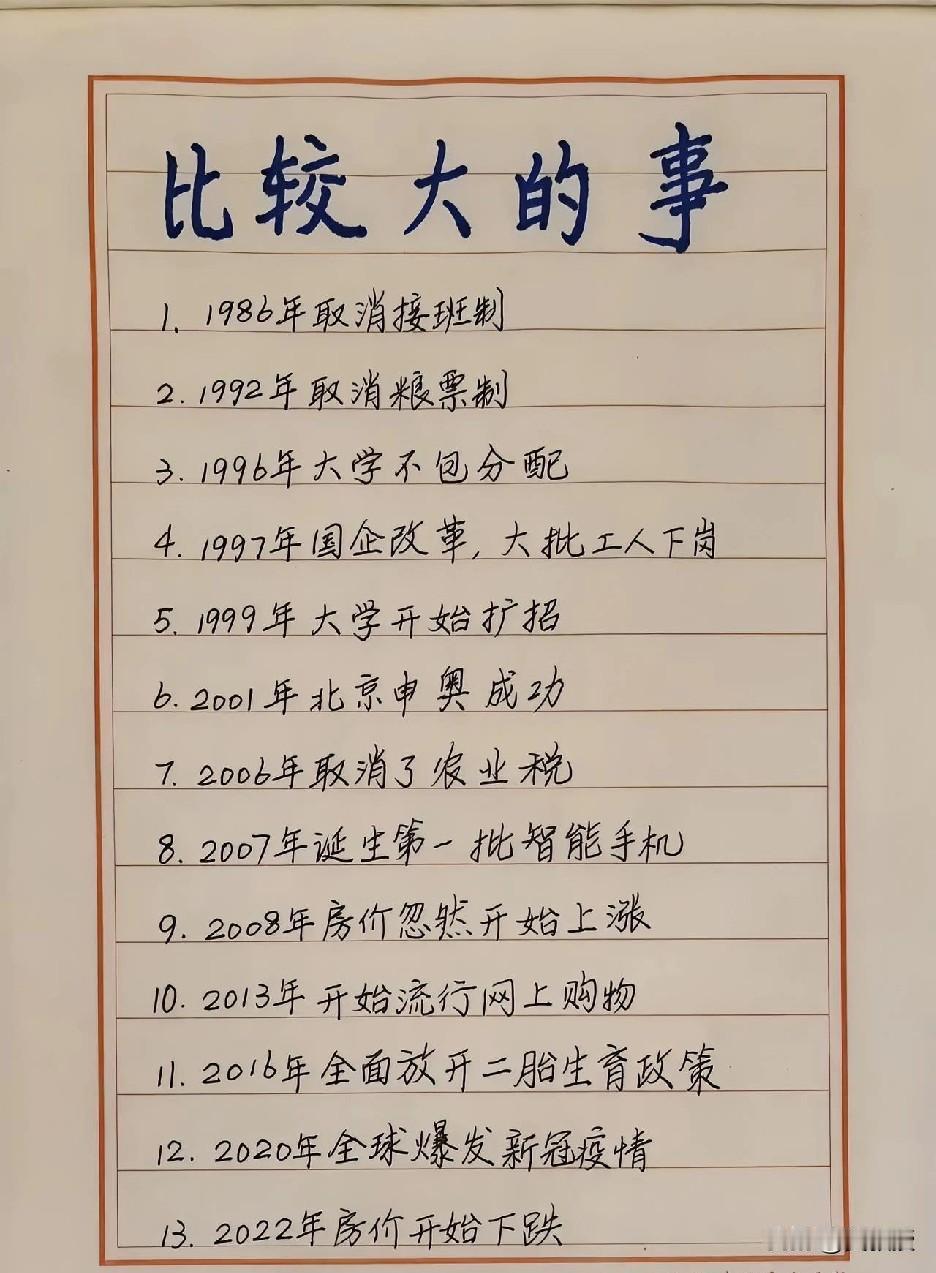 比较大的事
1. 1986年取消接班制
2. 1992年取消粮票制
3. 1996年大学不包分配
4. 1997年国企改革, 大批工人下岗
5. 1999年大学开始扩招
6. 2001年北京申奥成功
7. 2006年取消了农业税
8. 2007年诞生第一批智能手机
9. 2008年房价忽然开始上涨
10. 2013年开始流行网上购物
11. 2016年全面放开二胎生育政策
12. 2020年全球爆发新冠疫情
13. 2022年房价开始下跌